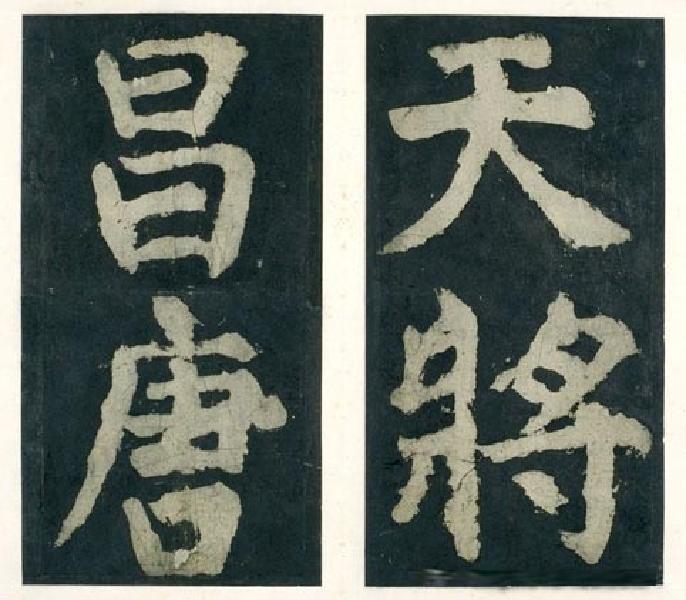 天將
昌唐